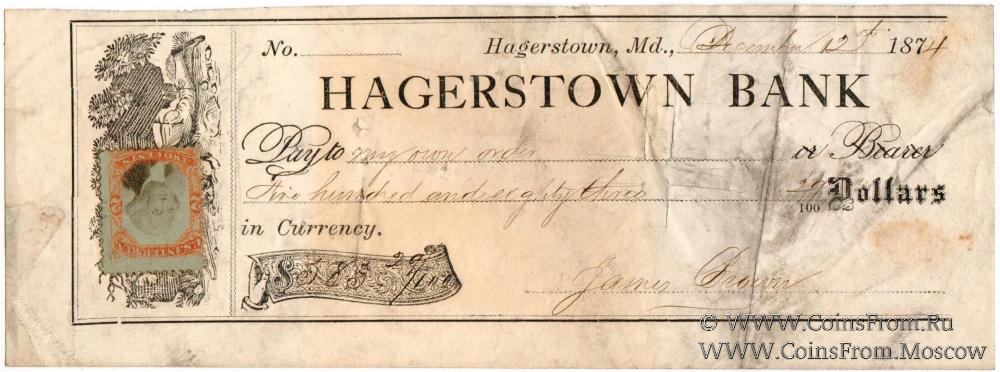 No. Hagerstown, Md., December 12th 1874
HAGERSTOWN BANK
Pay to my own order or Bearer
Five hundred and eighty three 29/100 Dollars
in Currency.
$583 29/100
James Brown
© WWW.CoinsFrom.Ru
WWW.CoinsFrom.Moscow